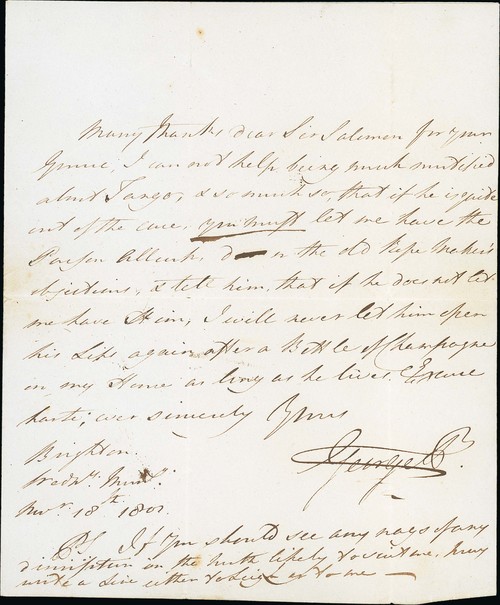 Many thanks dear Sir Solomon for your
I can not help being much mortified
about Tango, & so much so, that if he is quite
out of the case, you must let me have the
Parson d— n the old Pipe Makers
objections, & tell him, that if he does not let
me have Him, I will never let him open
his Lips again after a Bottle of Champagne
in my House as long as he lives. Excuse
haste; ever sincerely Yours
George P.
Brighton
Novr. 18th 1801.
PS. If you should see any nags of any
discription on the likely to suit me, pray
write a line either to or to me —